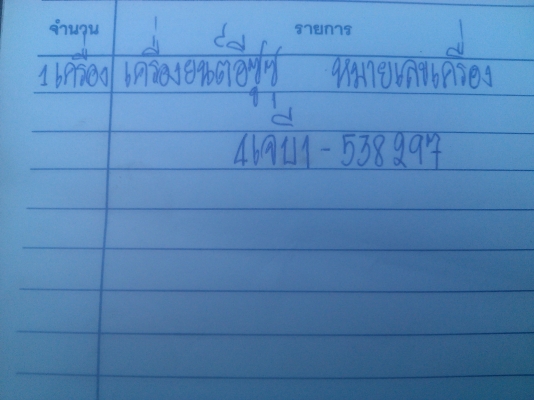 จำนวน รายการ
1 เครื่อง เครื่องยนต์อีซูซุ หมายเลขเครื่อง
4เจบี1 - 538297